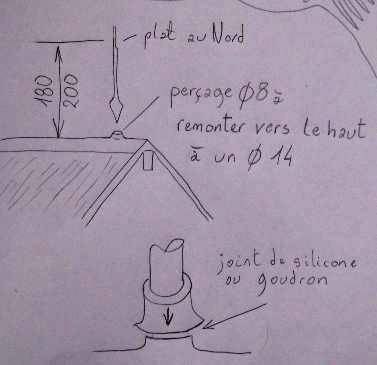 plat au Nord
180
200
perçage Ø8 à
remonter vers le haut
à un Ø 14
joint de silicone
ou goudron